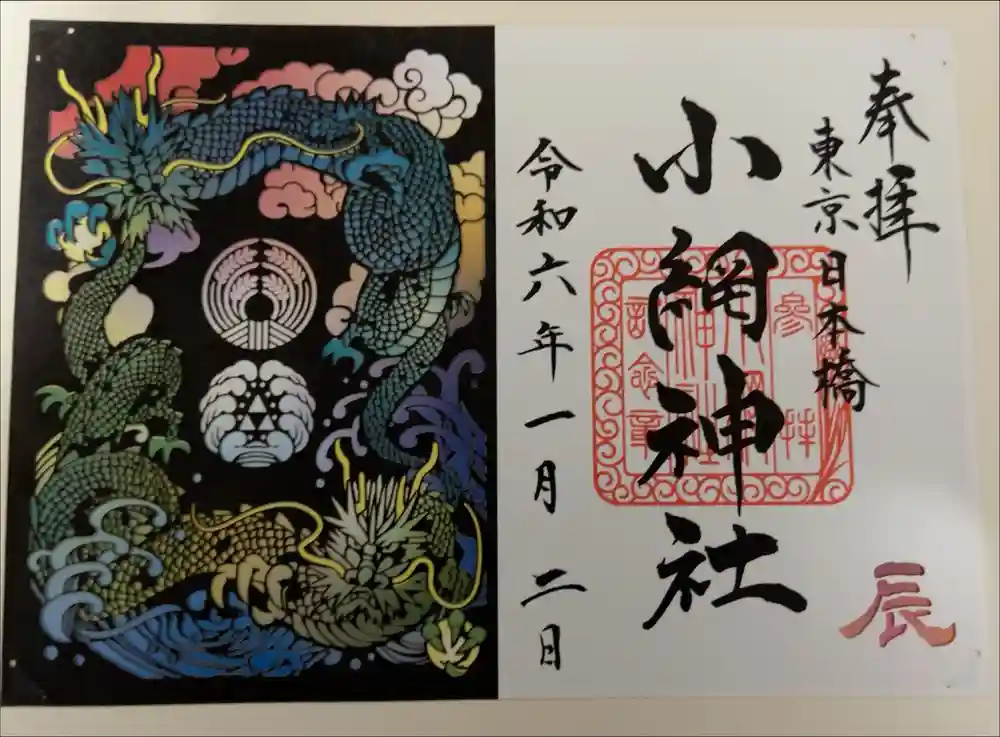 奉拝
東京日本橋
小網神社
令和六年一月二日
辰
参拝
小網
神社
記念章